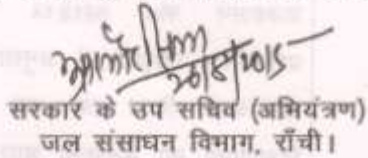 26/8/2015
सरकार के उप सचिव (अभियंत्रण)
जल संसाधन विभाग, राँची।